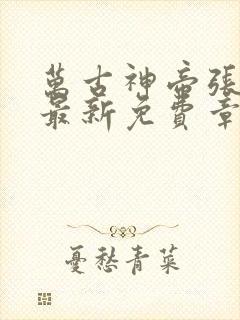 萬古神帝張
最新免費章
憂愁青菜